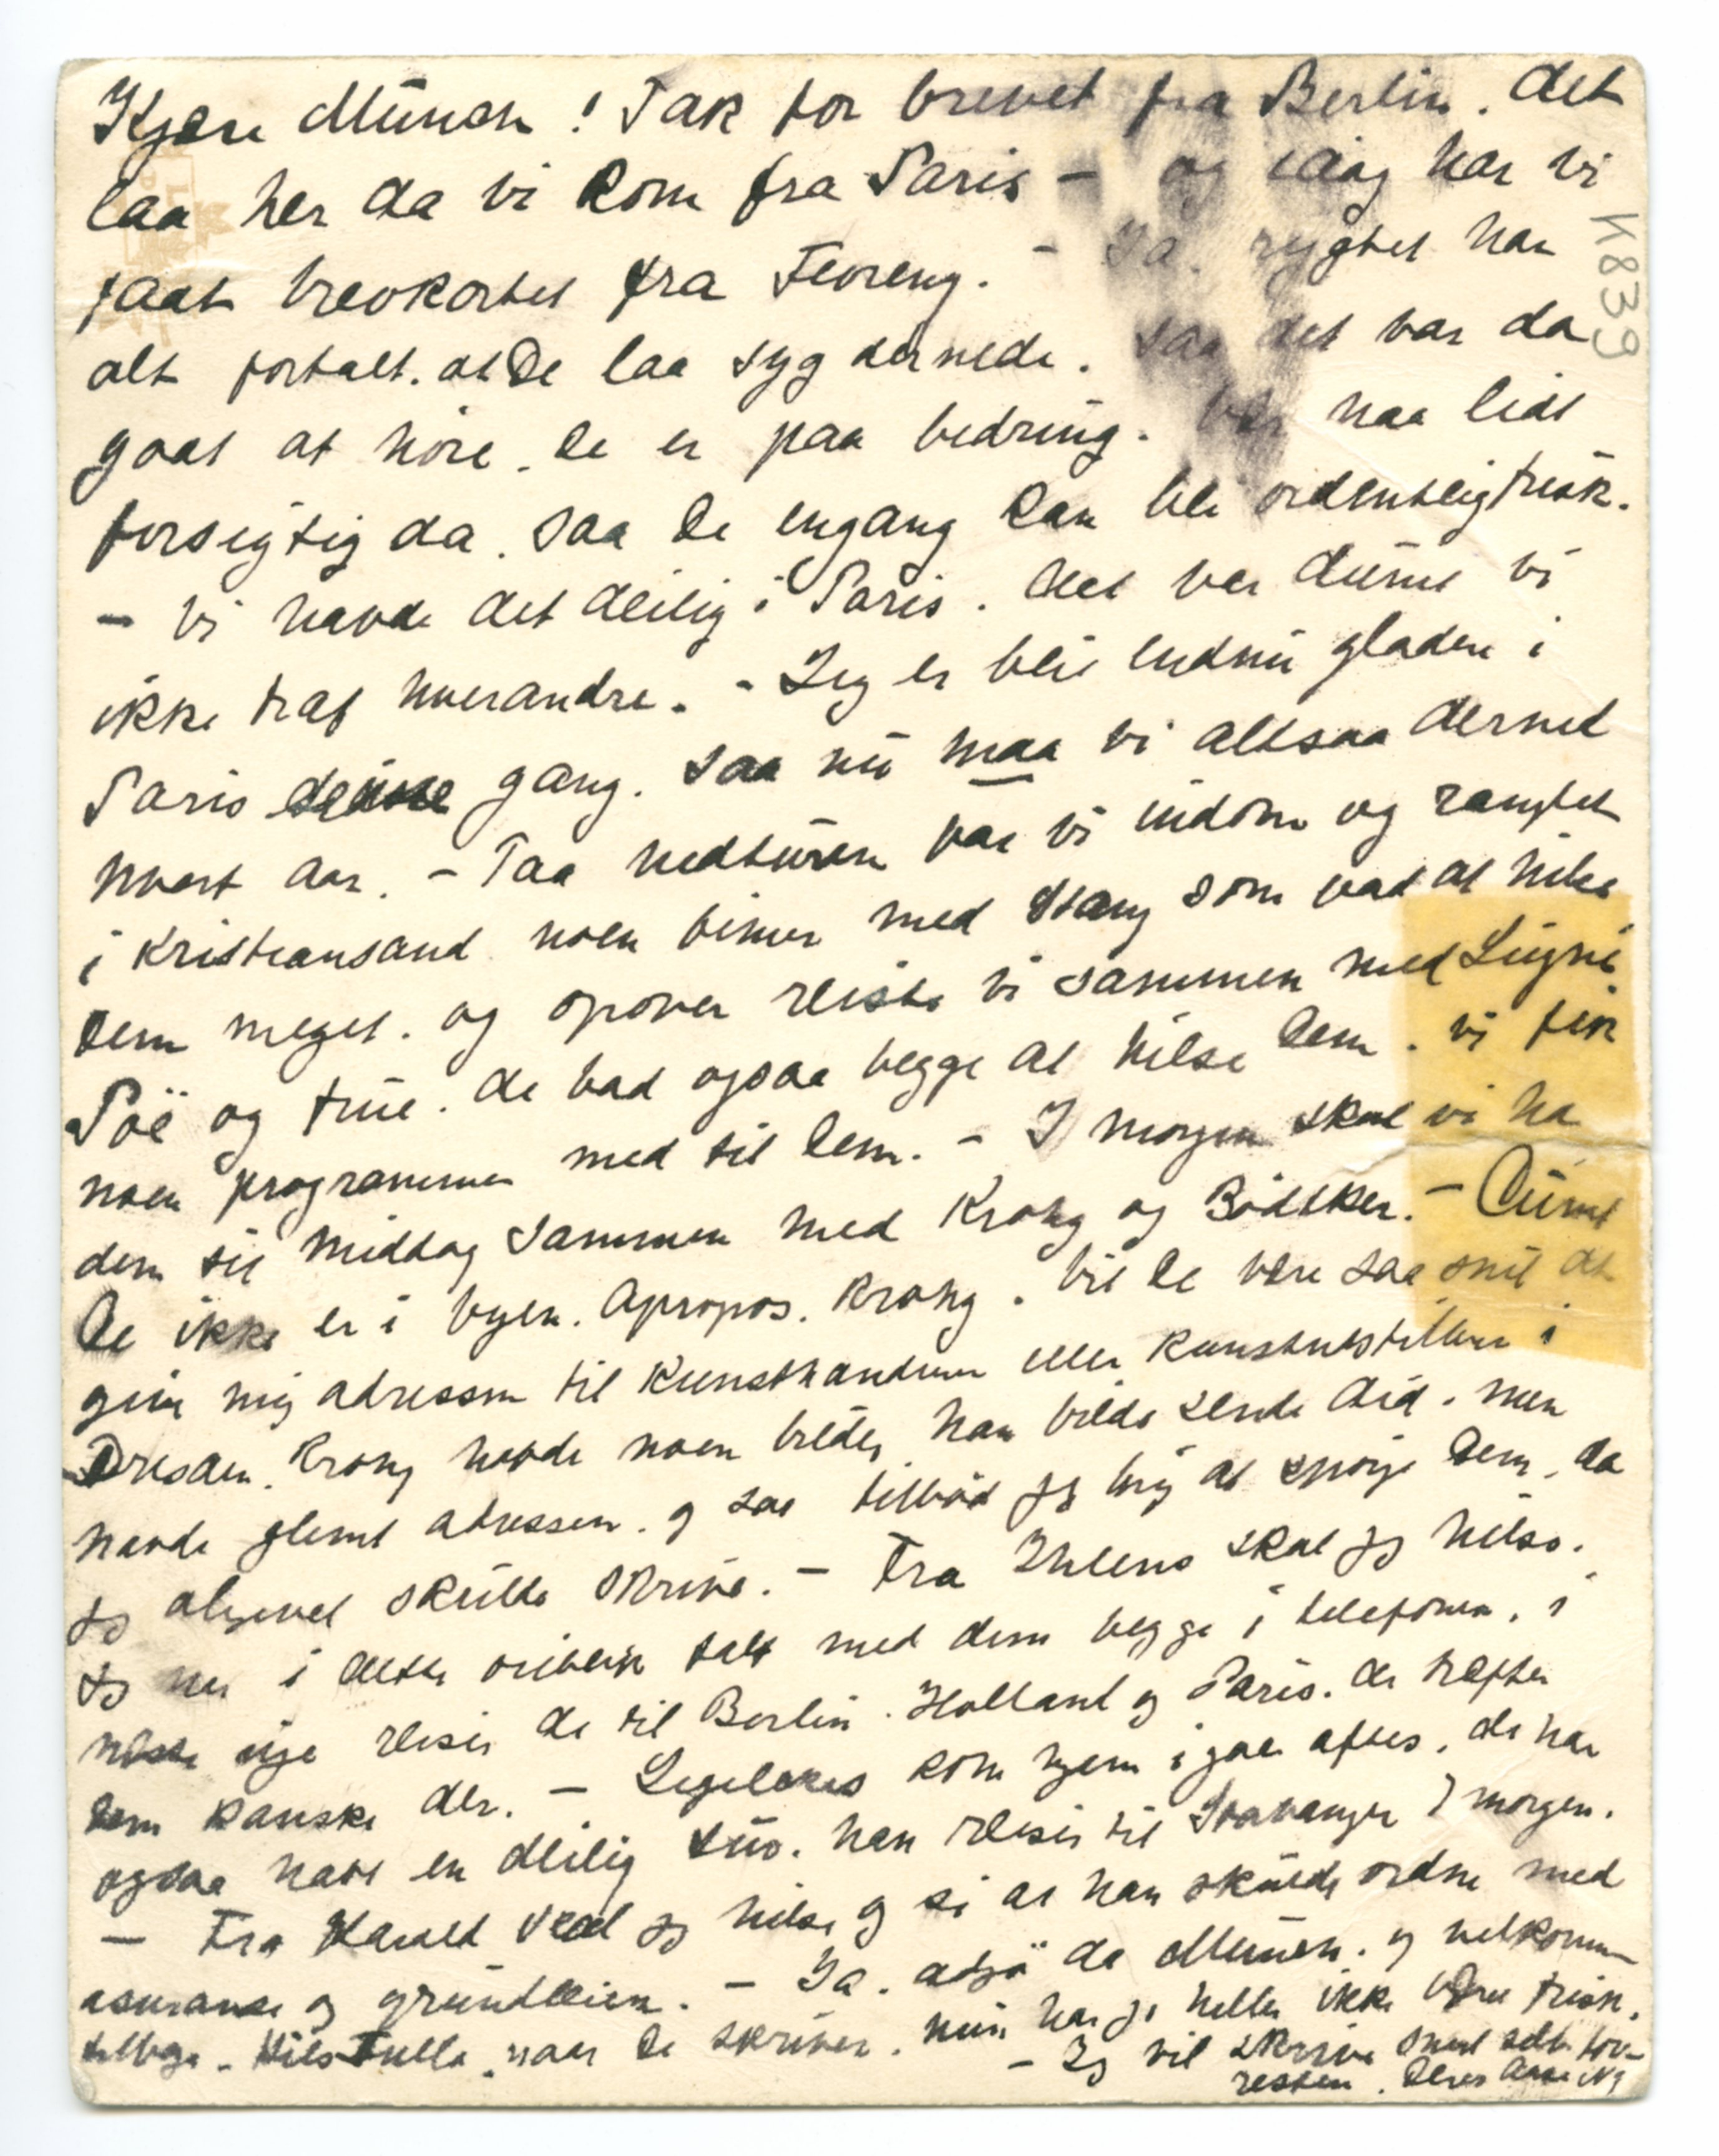 Kjære Münch! Tak for brevet fra Berlin. Det
laa her da vi kom fra Paris – og idag har vi
faat brevkortet fra Florenz. – Ja. rygtet har
alt fortalt. at De laa syg dernede. saa det var da
godt at höre. De er paa bedring. Vær naa lidt
forsigtig da. saa De engang kan bli ordentlig frisk.
– Vi havde det deilig i Paris. det var dümt vi
ikke traf hverandre. – Jeg er blit endnü gladere i
Paris denne gang. saa nü maa vi altsaa derned
hvert aar. – Paa nedtüren var vi indom og ranglet
i Kristiansand noen timer med Stang som bad at hilse
Dem meget. og opover reiste vi sammen med Lügné
Poë og früe. de bad ogsaa begge at hilse Dem. vi fik
noen programmer med til Dem. – I morgen skal vi ha
dem til middag sammen med Krohg og Bödtker. – Dümt
De ikke er i byen. Apropos. Krohg. Vil De være saa snil at
give mig adressen til Kunsthandleren eller Kunstutstilleren i
Dresden. Krohg havde noen billeder han vilde sende did. men
havde glemt adressen. og saa tilbød jeg mig at spørge Dem. da
jeg alligevel skülde skrive. – Fra Ihlens skal jeg hilse.
jeg har i dette øieblik talt med dem begge i telefonen. i
næste uge reiser de til Berlin. Holland og Paris. de træffer
Dem kanske der. – Sigelckes kom hjem i gaar aftes. de har
ogsaa havt en deilig tür. han reiser til Stavanger i morgen.
– Fra Harald skal jeg hilse og si at han skülde ordne med
asurance og gründleien. – Ja. adjö da Münch. og velkommen
tilbage. – Hils Tulla naar De skriver. hün har jo heller ikke været frisk.
– Jeg vil skrive snart selv. for-
resten. Deres Aase N.
K839